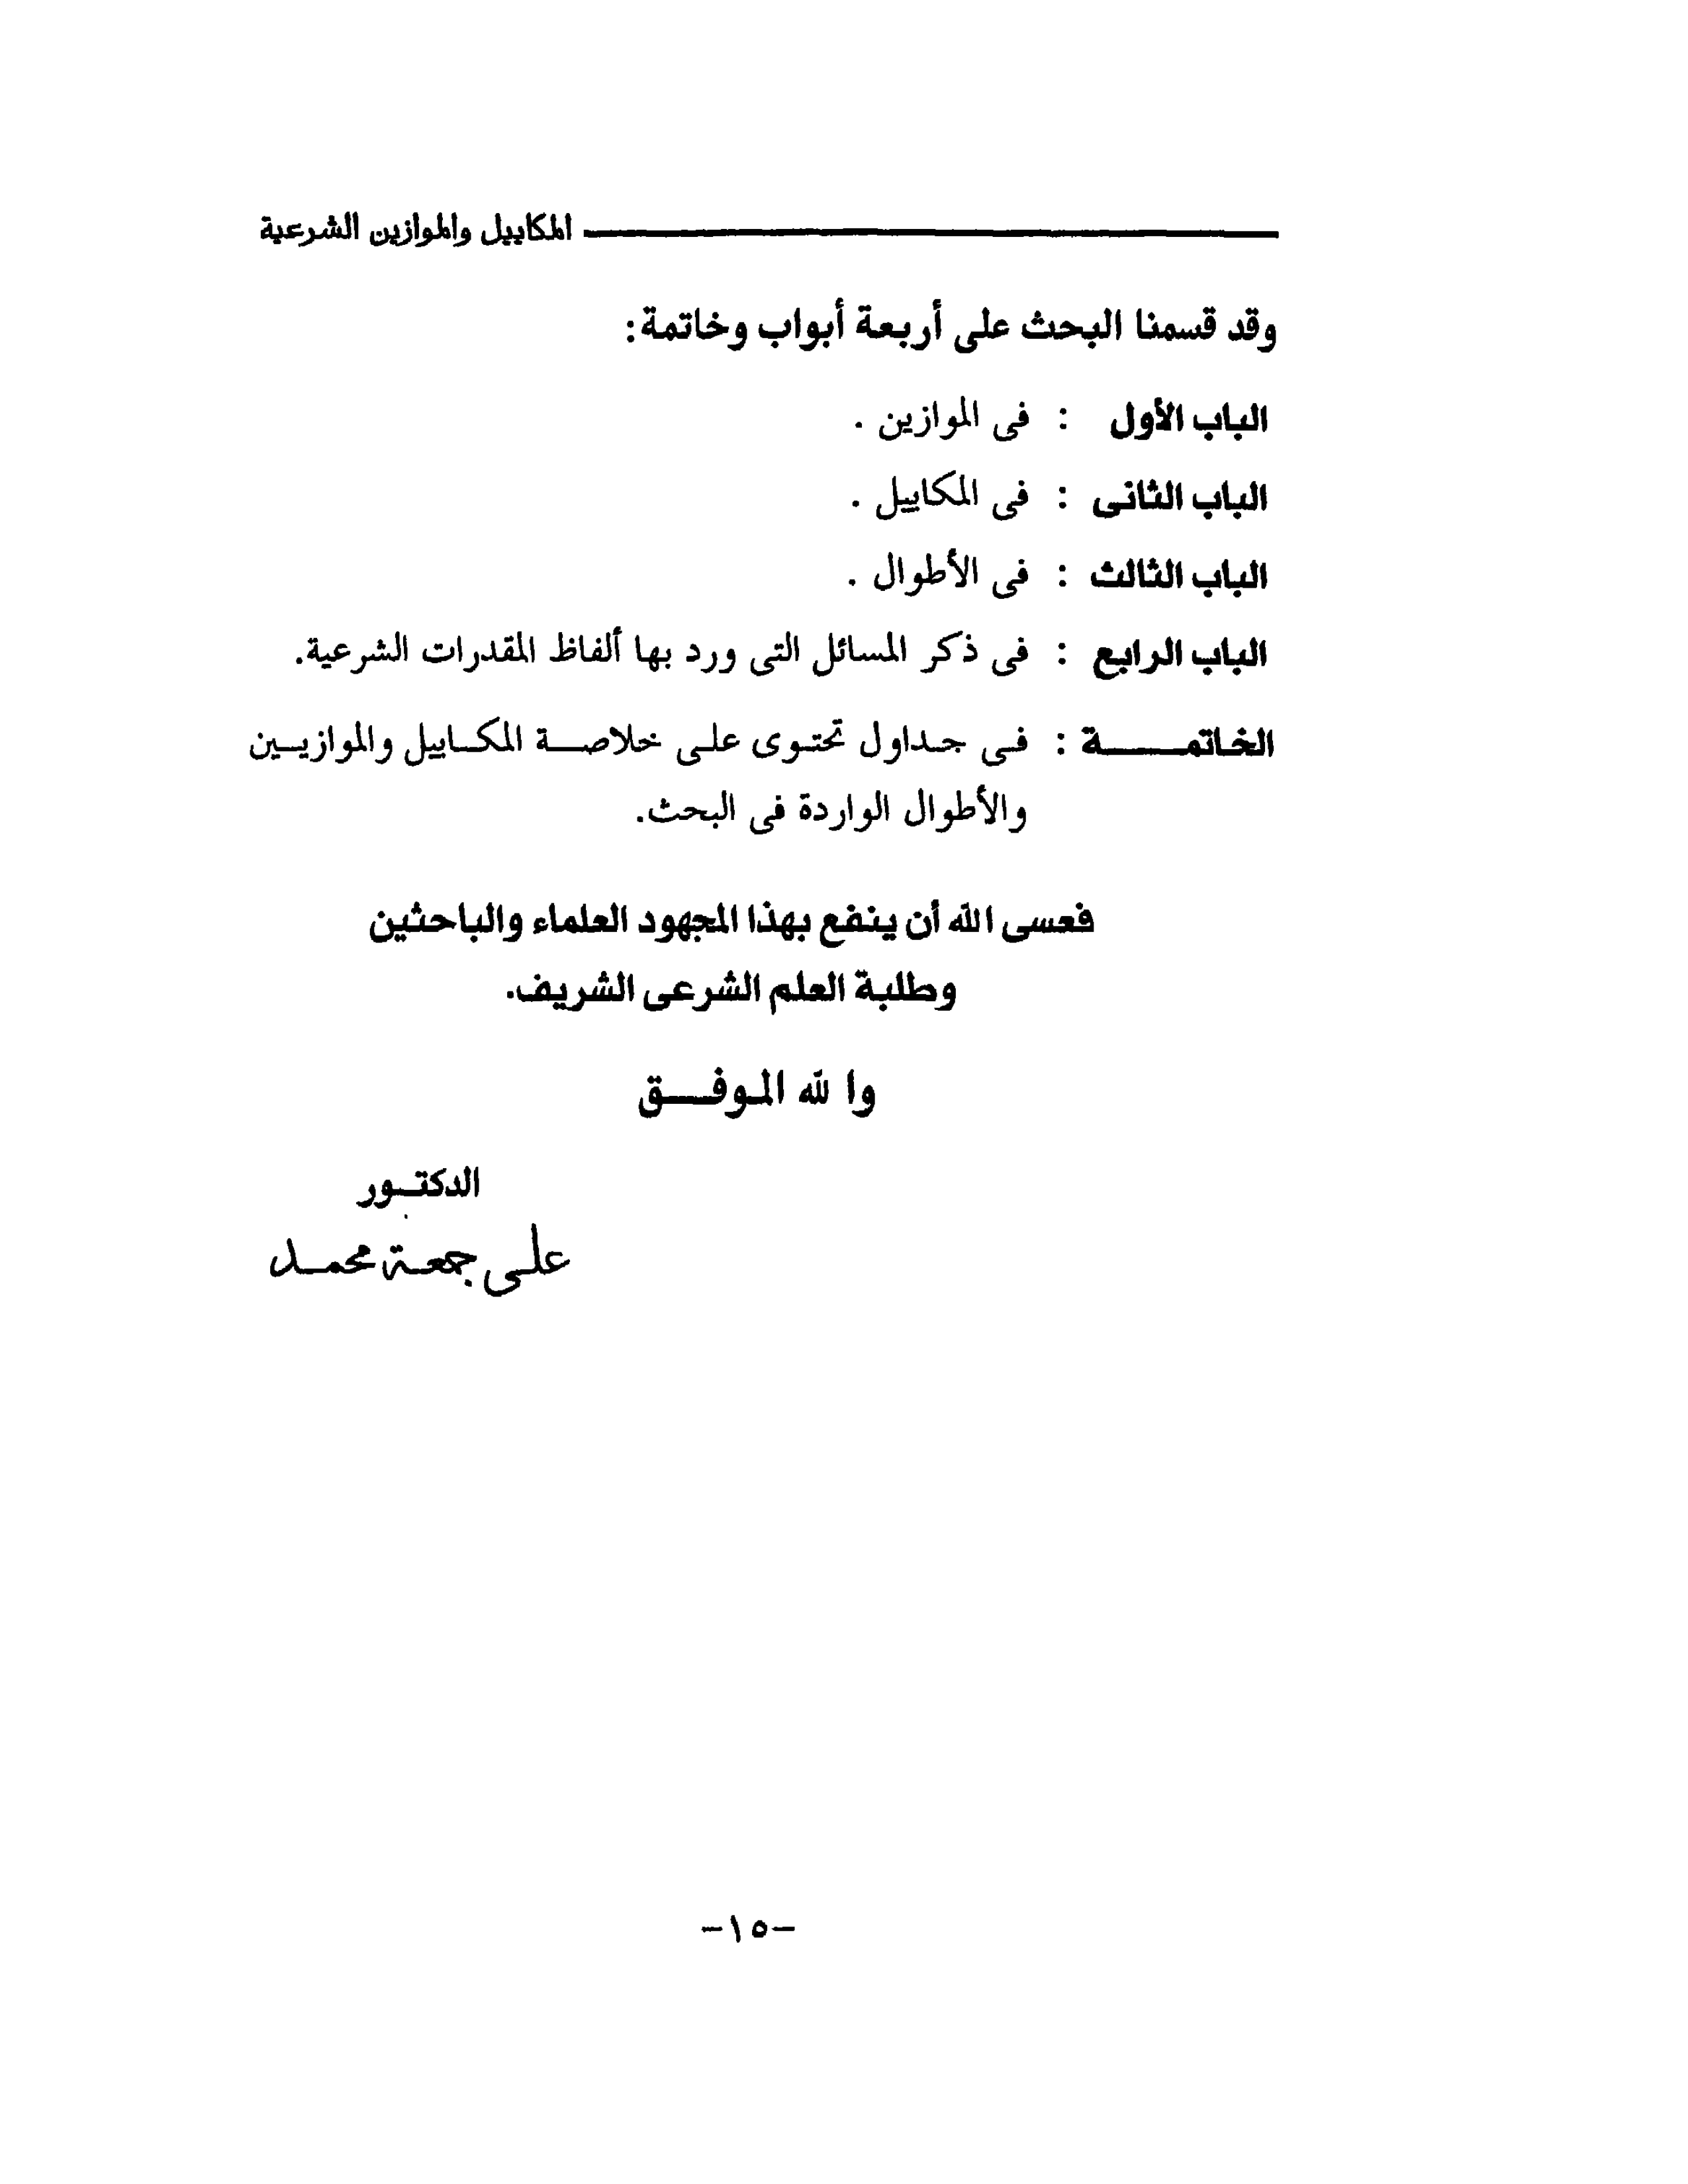 المكاييل والموازين الشرعية
وقد قسمنا البحث على أربعة أبواب وخاتمة:
الباب الأول : فى الموازين .
الباب الثانى : فى المكاييل .
الباب الثالث : فى الأطوال .
الباب الرابع : فى ذكر المسائل التى ورد بها ألفاظ المقدرات الشرعية.
الخاتمـــــة : فـى جـداول تحتـوى علـى خلاصـــة المكــاييل والموازيــين
والأطوال الواردة فى البحث.
فعسى الله أن ينفع بهذا المجهود العلماء والباحثين
وطلبة العلم الشرعى الشريف.
والله الموفـــق
الدكتـور
علـى جمعـة محمـد
-١٥-